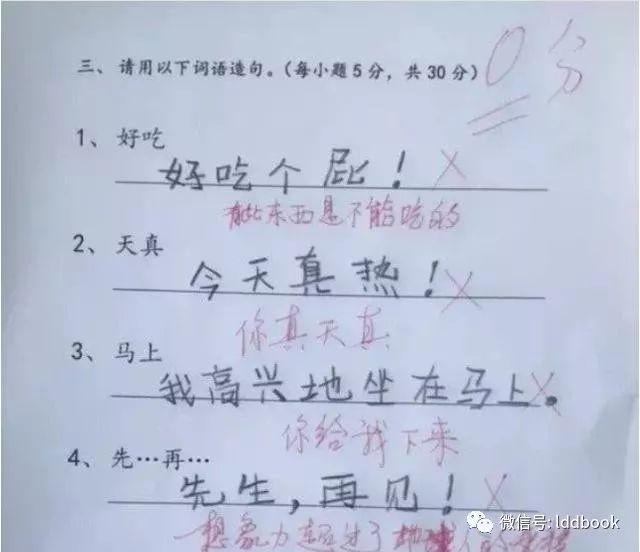 三、请用以下词语造句。(每小题5分，共30分)
0分
1、好吃
好吃个屁！
有些东西是不能吃的
2、天真
今天真热！
你真天真
3、马上
我高兴地坐在马上。
你给我下来
4、先…再…
先生，再见！
想象力超过了地球
微信号: lddbook